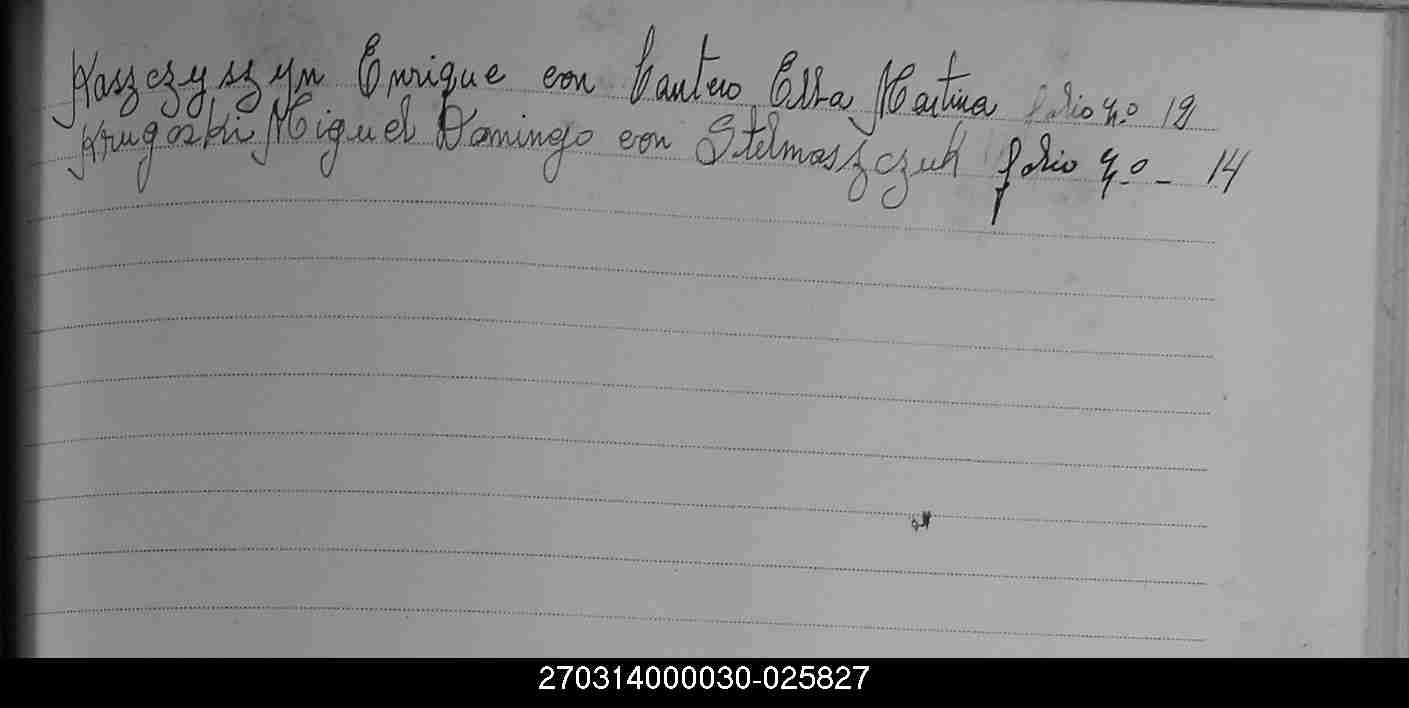 Kaszczyszyn Enrique con Cantero Elsa Martina folio n.o 12
Krugoski Miguel Domingo con Stelmaszczuk folio n.o - 14
270314000030-025827